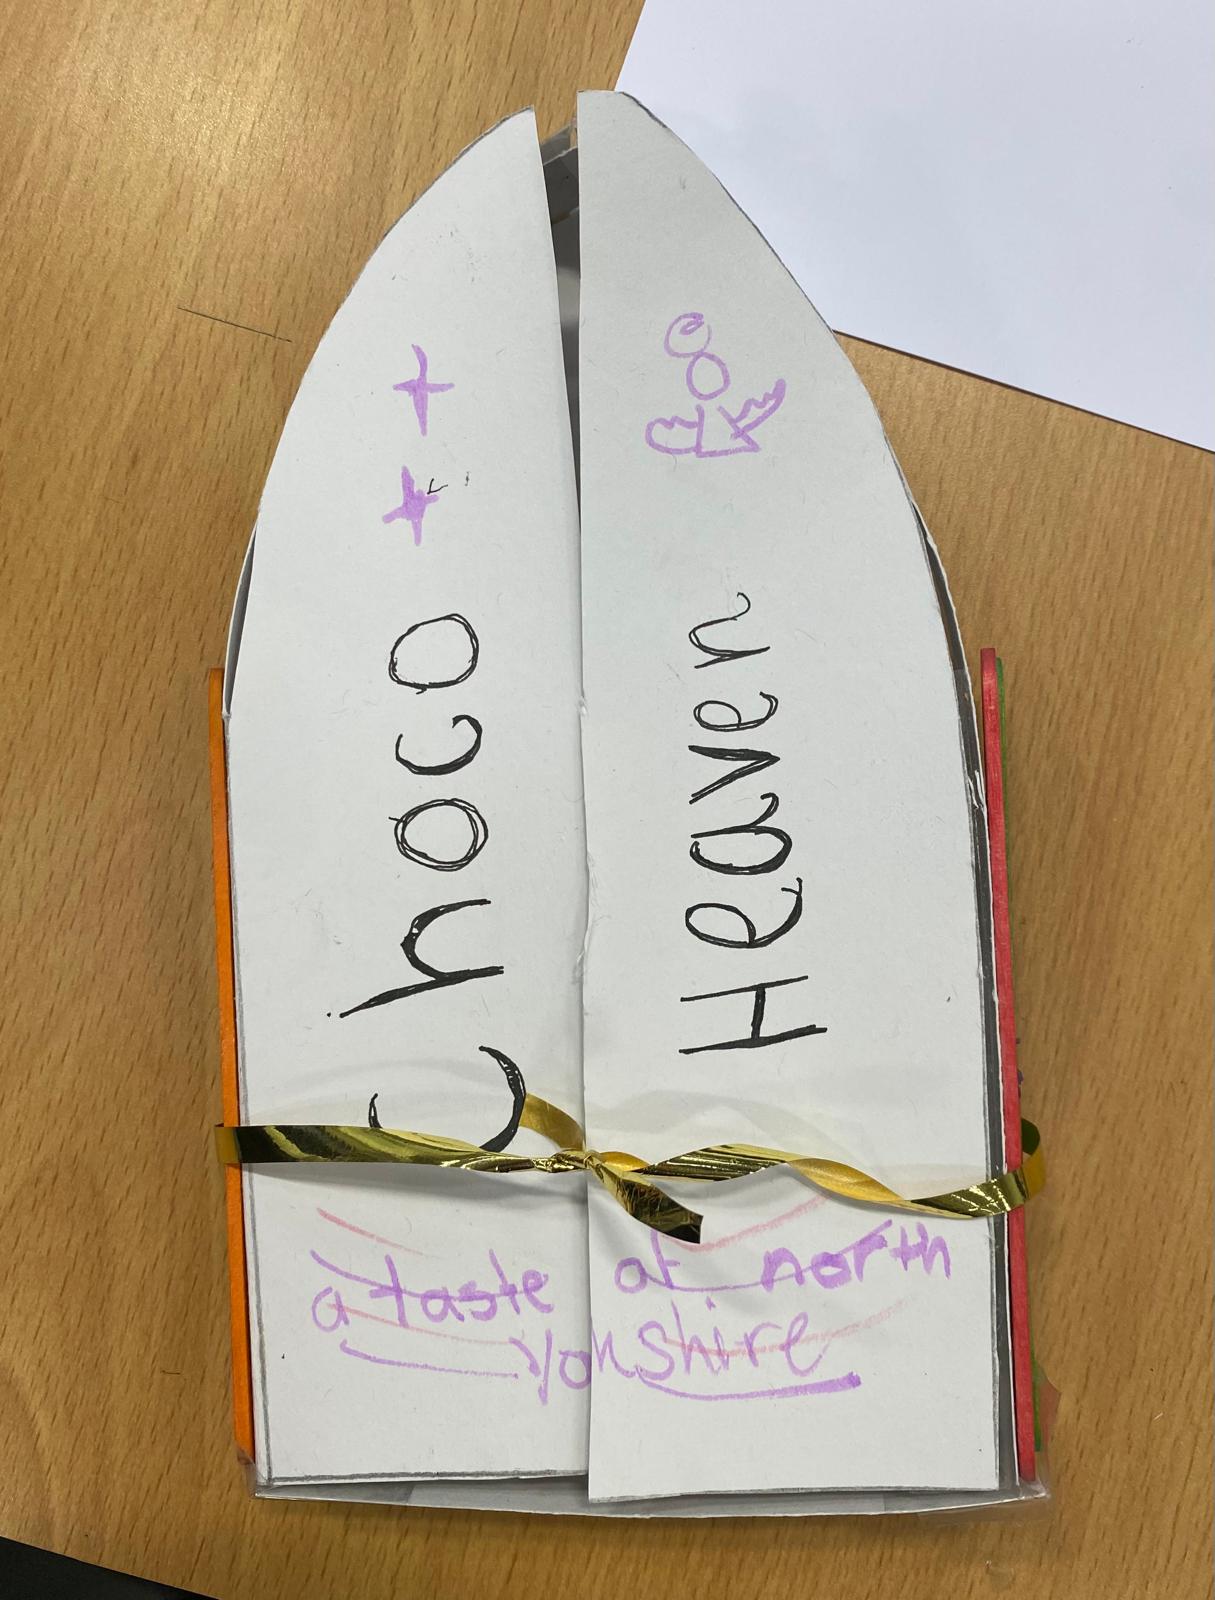 Choco
Heaven
a taste of north
Yokshire